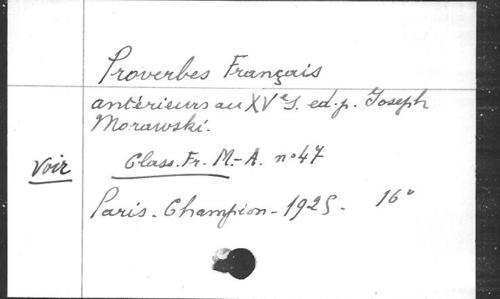 Proverbes Français
antérieurs au XVe s. ed. p. Joseph
Morawski.
Voir Class. Fr. M.-A. nº 47
Paris. Champion - 1925. 16º